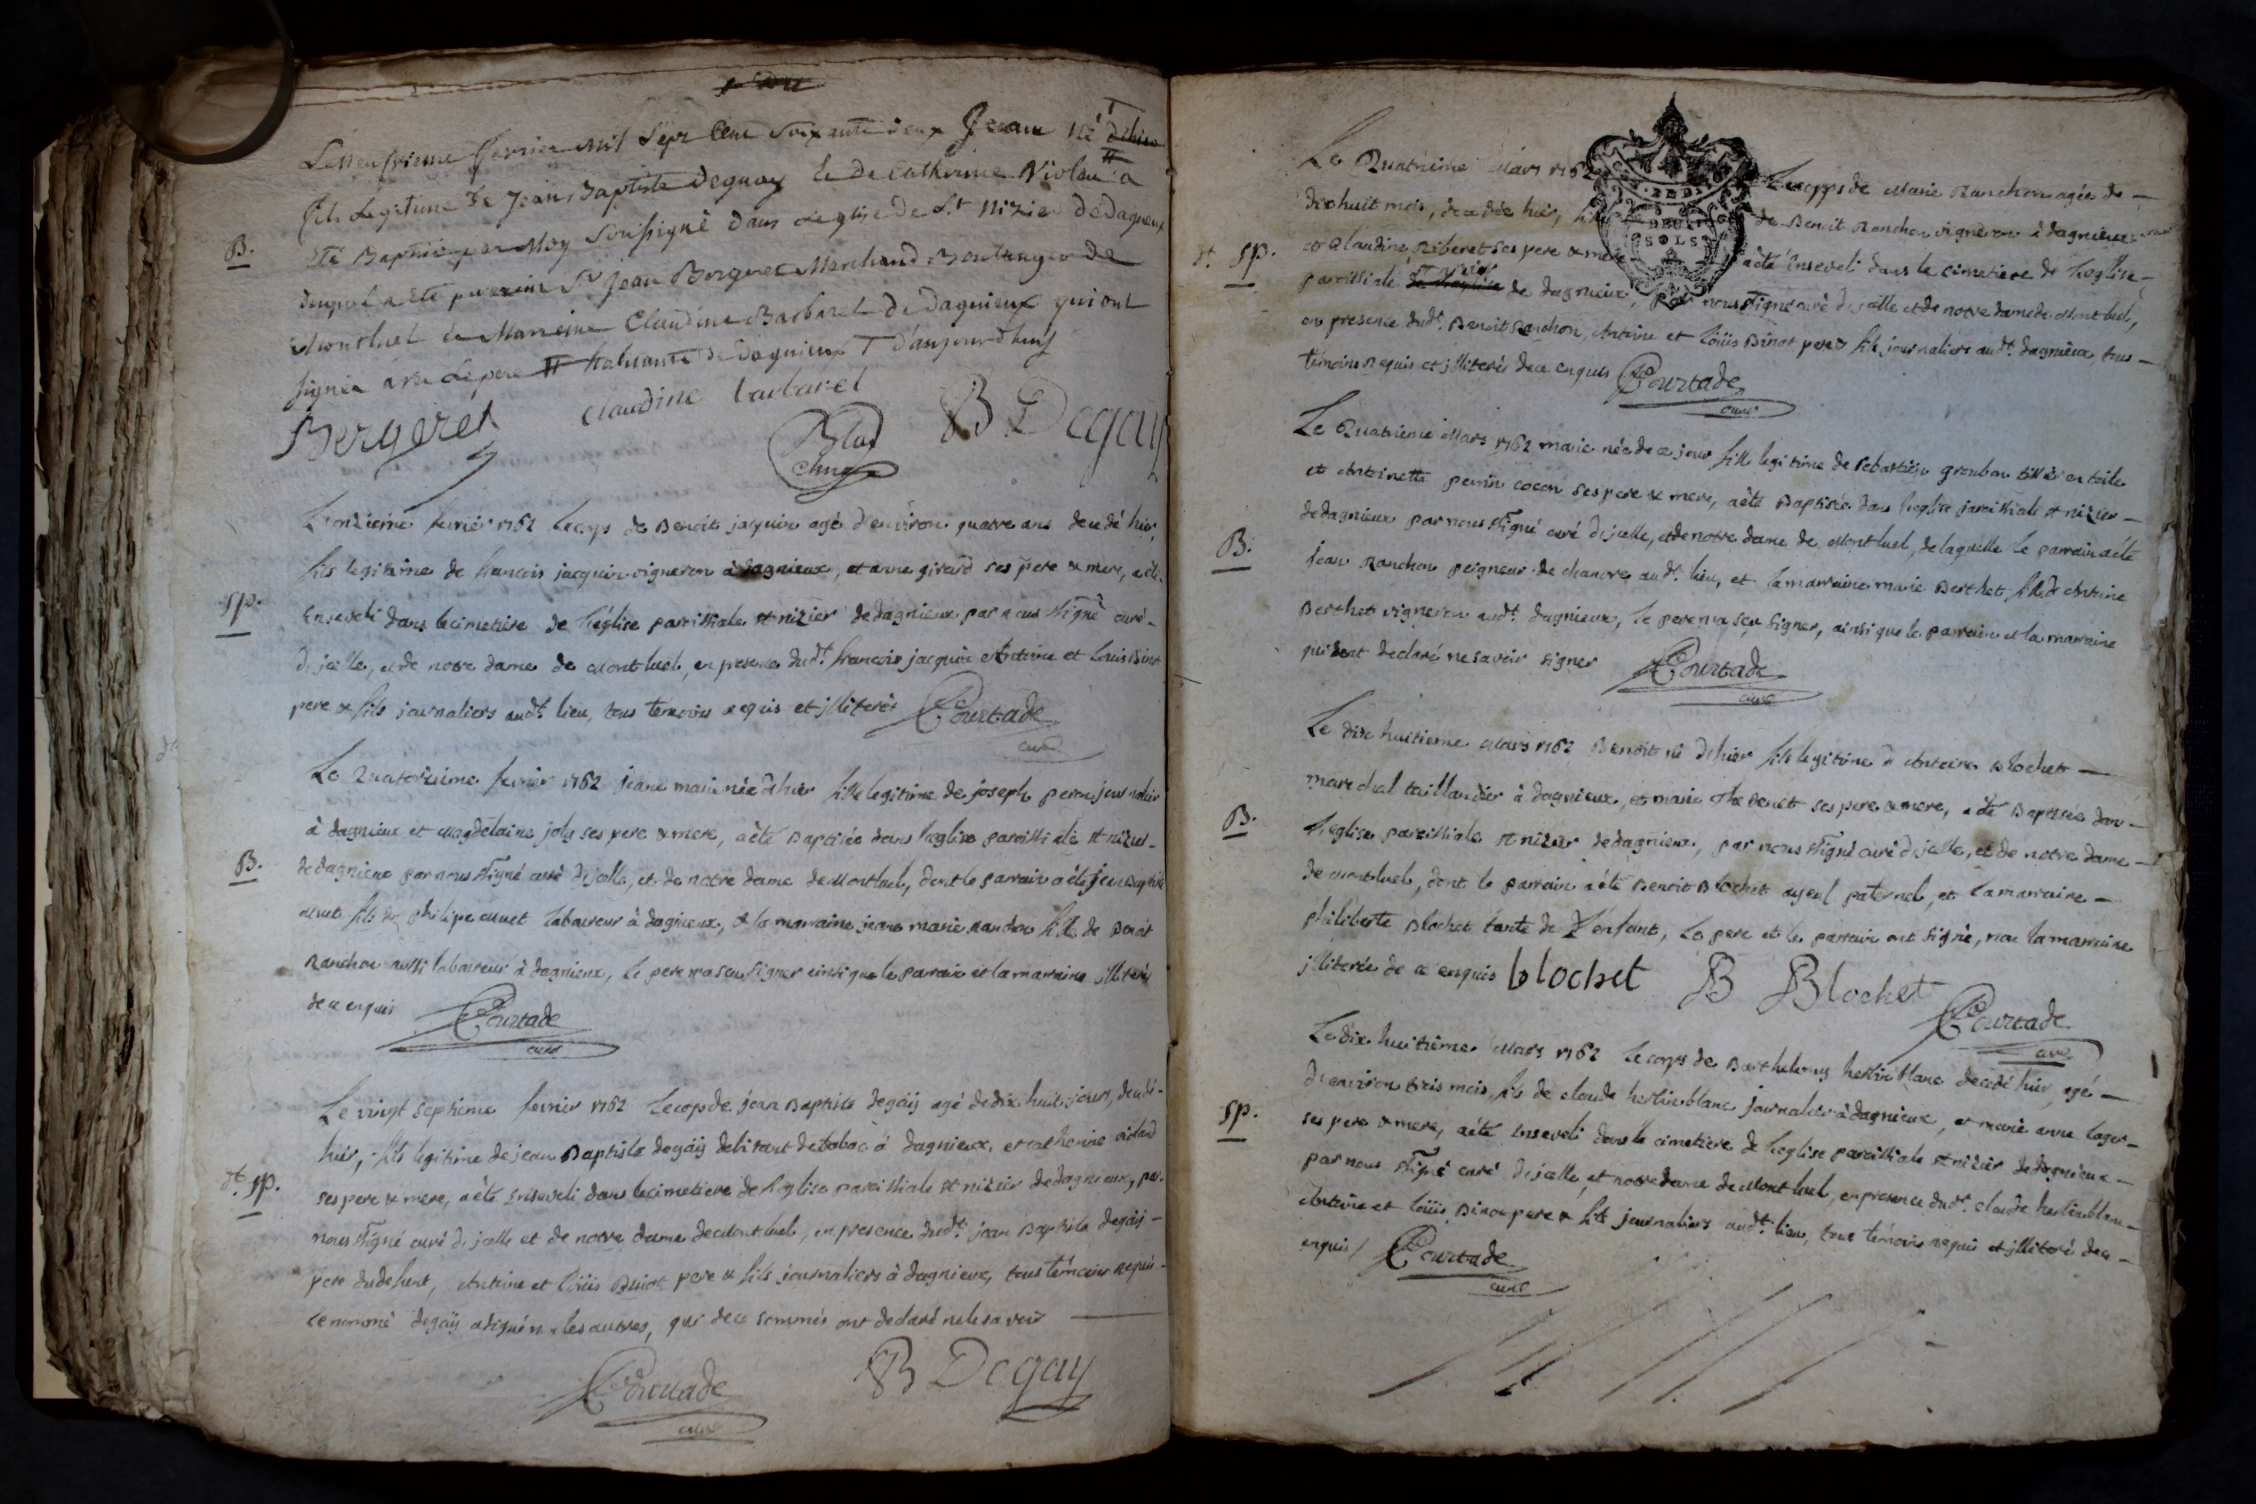 B.
Le neufvieme fevrier mil sept cent soixante deux Jean né
fils Legitime de Jean Baptiste Degay et de Catherine Violan a
été Baptisé par Moy Soussigné Dans Leglise de St Nizier de Dagneux
duquel a été parrein Sr Jean Bergeret Marchand Boulanger de
Montluel et Marreine Claudine Barbaret de Dagnieux qui ont
signés avec le pere # habitante de Dagnieux T d'aujourd'huy
Bergeret claudine barbaret B Degay
sp.
L'onzieme fevrier 1762 le corps de Benoit jacquin agé d'environ quatre ans decedé hier,
fils legitime de francois jacquin vigneron à dagnieux, et anne girard ses pere & mere, a été
Enseveli dans le cimetiere de l'église paroissiale st nizier de dagnieux par nous ssigné curé
d'jcelle, et de notre dame de Montluel, en presence dudt francois jacquin Antoine et Louis Binot
pere & fils journaliers audt lieu, tous temoins requis et jlliterés Courtade
curé
B.
Le Quatorzieme fevrier 1762 jeane marie née d'hier fille legitime de joseph peron journalier
à dagnieux et Magdelaine joly ses pere & mere, a été Baptisée dans l'eglise paroissiale st nizier
de dagnieux par nous ssigné curé d'jcelle, et de notre dame de Montluel, dont le parrain a été jean Baptiste
fils de philipe laboureur à dagnieux, & la marraine jeane marie ranchon fille de Benoit
Ranchon aussi laboureur à dagnieux, le pere n'a sçu signer ainsi que le parrain et la marraine jlliterés
de ce enquis Courtade
curé
dt sp.
Le vingt septieme fevrier 1762 le corps de jean Baptiste degaÿ agé de dix huit jours, decedé
hier, fils legitime de jean Baptiste degaÿ debitant de tabac à dagnieux, et catherine violand
ses pere & mere, a été Enseveli dans le cimetiere de l'eglise paroissiale st nizier de dagnieux, par
nous ssigné curé d'jcelle et de notre dame de Montluel, en presence dudt jean Baptiste degaÿ
pere du defunt, Antoine et Loüis Binot pere & fils journaliers à dagnieux, tous temoins requis
le nommé degaÿ a signé n. les autres, qui de ce sommés ont declaré ne le savoir
Courtade B Degay
curé
dt sp.
Le Quatrieme Mars 1762 Le corps de Marie Ranchon agée de
dix huit mois, decedée hier, fille de Benoit Ranchon vigneron à dagnieux
et Claudine Riberet ses pere & mere a été Enseveli dans le cimetiere de l'eglise
paroissiale de dagnieux, par nous ssigné curé d'jcelle et de notre dame de Montluel,
en presence dudt Benoit Ranchon, Antoine et Loüis Binot pere & fils journaliers audt dagnieux, tous
témoins requis et jlliterés de ce enquis Courtade
curé
B.
Le Quatrieme Mars 1762 marie née de ce jour fille legitime de sebastien tissier en toile
et Antoinette perrin cocon ses pere & mere, a été Baptisée dans l'eglise paroissiale st nizier
de dagnieux par nous ssigné curé d'jcelle, et de notre dame de Montluel, de laquelle le parrain a été
jean Ranchon peigneur de chanvre audt lieu, et la marraine marie Berthet fille de Antoine
Berthet vigneron audt dagnieux, le pere n'a sçu signer, ainsi que le parrain et la marraine
qui ont declaré ne savoir signer Courtade
curé
B.
Le dix huitieme Mars 1762 Benoit né d'hier fils legitime d'Antoine Blochet
marechal taillandier à dagnieux, et marie ses pere & mere, a été Baptisée dans
l'eglise paroissiale st nizier de dagnieux, par nous ssigné curé d'jcelle, et de notre dame
de montluel, dont le parrain a été Benoit Blochet ayeul paternel, et la marraine
philiberte Blochet tante de l'enfant, le pere et le parrain ont signé, non la marraine
jlliterée de ce enquis blochet B Blochet Courtade
curé
sp.
Le dix huitième Mars 1762 le corps de Barthelemy herlin blanc decedé hier, agé
d'environ trois mois, fils de claude herlin blanc journalier à dagnieux, et marie anne
ses pere & mere, a été Enseveli dans le cimetiere de l'eglise paroissiale st nizier de dagnieux
par nous ssigné curé d'jcelle, et notre dame de Montluel, en presence dudt claude herlin blanc
Antoine et Loüis Binot pere & fils journaliers audt lieu, tous témoins requis et jlliterés de ce
enquis / Courtade
curé